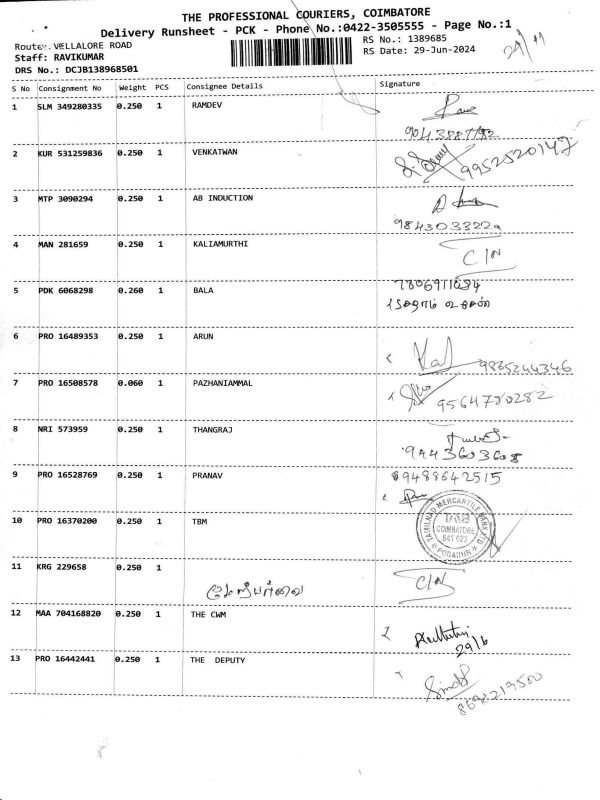 THE PROFESSIONAL COURIERS, COIMBATORE
Delivery Runsheet - PCK - Phone No.:0422-3505555 - Page No.:1
Route: VELLALORE ROAD
RS No.: 1389685
Staff: RAVIKUMAR
RS Date: 29-Jun-2024
DRS No.: DCJB138968501
S No Consignment No Weight PCS Consignee Details Signature
1 SLM 349280335 0.250 1 RAMDEV
2 KUR 531259836 0.250 1 VENKATWAN
9952520147
3 MTP 3090294 0.250 1 AB INDUCTION
4 MAN 281659 0.250 1 KALIAMURTHI
C/N
5 PDK 6068298 0.260 1 BALA
6 PRO 16489353 0.250 1 ARUN
9865244346
7 PRO 16508578 0.060 1 PAZHANIAMMAL
9564780282
8 NRI 573959 0.250 1 THANGRAJ
9443603608
9 PRO 16528769 0.250 1 PRANAV
9488642515
10 PRO 16370200 0.250 1 TBM
TAMILNAD MERCANTILE BANK LTD
TMB
COIMBATORE
641 023
PODANUR
11 KRG 229658 0.250 1
C/N
12 MAA 704168820 0.250 1 THE CWM
29/6
13 PRO 16442441 0.250 1 THE DEPUTY